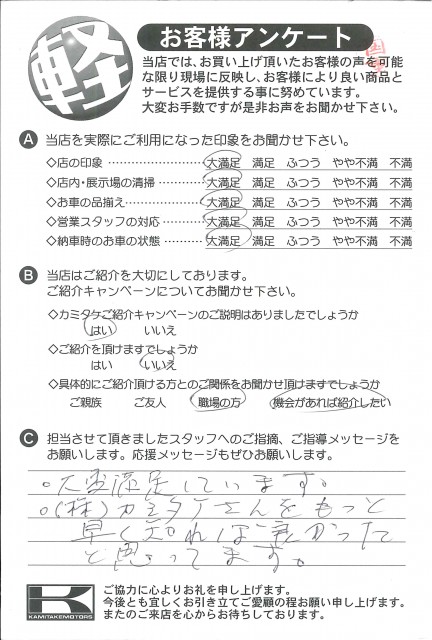 軽
お客様アンケート
当店では、お買い上げ頂いたお客様の声を可能
な限り現場に反映し、お客様により良い商品と
サービスを提供する事に努めています。
大変お手数ですが是非お声をお聞かせ下さい。
A 当店を実際にご利用になった印象をお聞かせ下さい。
◇店の印象 ………………… 大満足 満足 ふつう やや不満 不満
◇店内・展示場の清掃 ………… 大満足 満足 ふつう やや不満 不満
◇お車の品揃え ……………… 大満足 満足 ふつう やや不満 不満
◇営業スタッフの対応 ………… 大満足 満足 ふつう やや不満 不満
◇納車時のお車の状態 ………… 大満足 満足 ふつう やや不満 不満
B 当店はご紹介を大切にしております。
ご紹介キャンペーンについてお聞かせ下さい。
◇カミタケご紹介キャンペーンのご説明はありましたでしょうか
はい いいえ
◇ご紹介を頂けますでしょうか
はい いいえ
◇具体的にご紹介頂ける方とのご関係をお聞かせ頂けますでしょうか
ご親族 ご友人 職場の方 機会があれば紹介したい
C 担当させて頂きましたスタッフへのご指摘、ご指導メッセージを
お願いします。応援メッセージもぜひお願いします。
。大変満足しています。
。(株)カミタケさんをもっと
早く知れば良かったな
と思ってます。
K
KAMITAKEMOTORS
ご協力に心よりお礼を申し上げます。
今後とも宜しくお引き立てご愛顧の程お願い申し上げます。
またのご来店を心からお待ちしております。